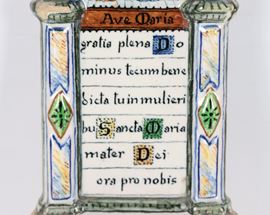 Ave Maria
gratia plena Do
minus tecum bene
dicta tu in mulieri
bu Sancta Maria
mater Dei
ora pro nobis